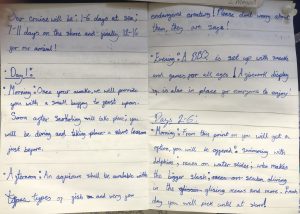 Your cruise will be: 1-6 days at sea;
7-11 days on the shore and finally 12-16
for me arrival!
• Day 1:
• Morning: Once your awake, we will provide
you with a small buggy to feast upon.
Soon after something will take place, you
will be dining and taking place a short lesson
just before.
• Afternoon: An aquarium shall be available with
types of fish and very you
endangered creatures! Please don't worry about
them, they are safe!
• Evening: A BBQ is set up with snacks
and games for all ages! A firework display
is also in place for everyone to enjoy!
Days 2-6:
• Morning: From this point on you will get a
option, you will be offered: Swimming with
dolphins, races on water slides, who makes
the bigger splash, races on scuba diving
on the glazing views and more. Each
day you will pick until at shore!